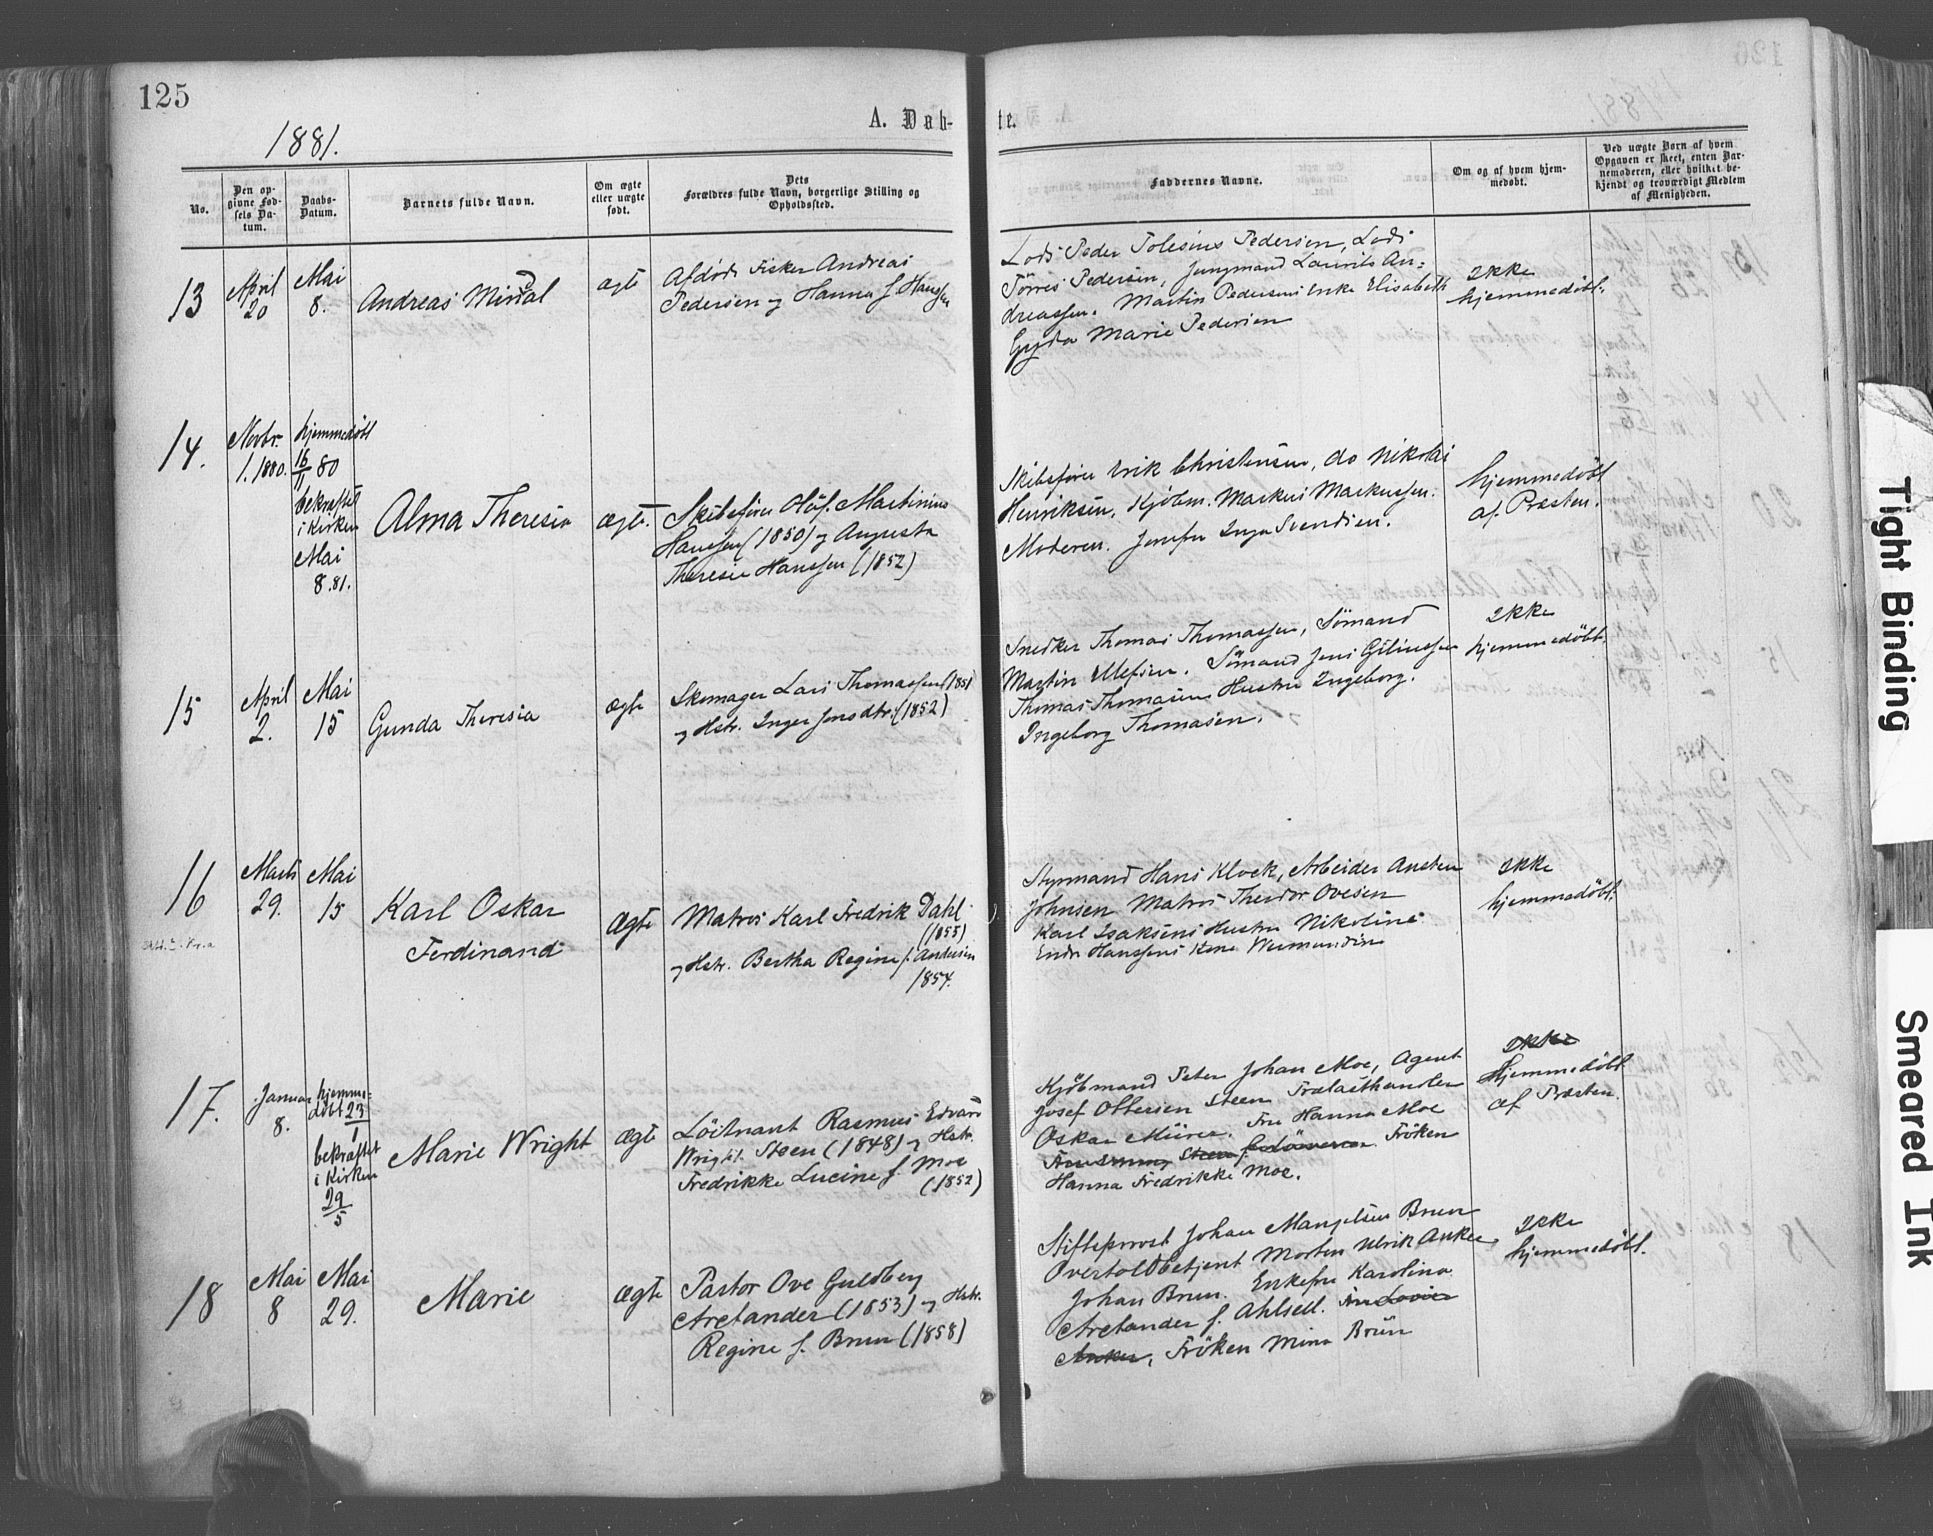 125
1881.
A. Dåb-
te.
No.
Den op-
givne Fød-
sels Da-
tum.
Daabs-
Datum.
Barnets fulde Navn.
Om ægte
eller uægte
født.
Dets
Forældres fulde Navn, borgerlige Stilling og
Opholdssted.
Faddernes Navne.
Om og af hvem hjem-
medøbt.
Ved uægte Børn af hvem
Opgaven er skeet, enten Bar-
nemoderen, eller hvilket be-
kjendt og troværdigt Medlem
af Menigheden.
13
April
20
Mai
8.
Andreas
ægte
Afdød Fisker Andreas
Pedersen og Hanna f. Hanssen
Lods Peder Tolesius Pedersen, Lods
Tørres Pedersen, Jungmand Laurits An=
dreassen. Martin Pedersens Enke Elisabeth
Gyda Marie Pedersen
Ikke
hjemmedøbt.
14.
Novbr.
1. 1880.
hjemmedøbt
16/11 80
bekræftet
i Kirken
Mai
8. 81.
Alma Theresia
ægte.
Skibsfører Oluf Martinius
Hanssen (1850) og Augusta
Theresie Hanssen (1852)
Skibsfører Erik Christensen, do Nikolai
Henriksen, Kjøbm. Markus Markussen.
Moderen. Jomfru Inga Svendsen.
hjemmedøbt
af Præsten.
15
April
2.
Mai
15
Gunda Theresia
ægte
Skomager Lars Thomassen (1851
og Hstr. Inger Jensdtr. (1852)
Snedker Thomas Thomassen, Sømand
Martin Ellefsen. Sømand Jens
Thomas Thomasens Hustru Ingeborg.
Ingeborg Thomasen.
Ikke
hjemmedøbt.
16
Marts
29.
Mai
15
Karl Oskar
Ferdinand
ægte
Matros Karl Fredrik Dahl
(1855)
og Hstr. Bertha Regine f. Andersen
1854.
Styrmand Hans Klock, Arbeider Ansten
Johnsen Matros Theodor Ovesen
Karl Isaksens Hustru Nikoline
Endr. Hanssens Kone
Ikke
hjemmedøbt.
17.
Januar
8.
hjemme-
døbt 23/1
bekræftet
i Kirken
29/5
Marie Wright
ægte
Løitnant Rasmus Edvard
Wright Steen (1848) og Hstr.
Fredrikke Lucine f. Moe
(1852)
Kjøbmand Peter Johan Moe, Agent
Josef Ottersen Steen Trælasthandler
Oskar Mürer. Fru Hanna Moe
Frøken
Hanna Fredrikke Moe.
Ikke
Hjemmedøbt
af Præsten.
18
Mai
8
Mai
29.
Marie
ægte
Pastor Ove Guldberg
Arctander (1853) og Hstr.
Regine f. Brun (1858)
Stiftsprovst Johan Mangelsen Brun
Overtoldbetjent Morten Ulrik Anker,
Johan Brun. Enkefru Karolina
Arctander f. Ahlsell.
Anker, Frøken Mina Brün
Ikke
hjemmedøbt.
Tight Binding
Smeared Ink